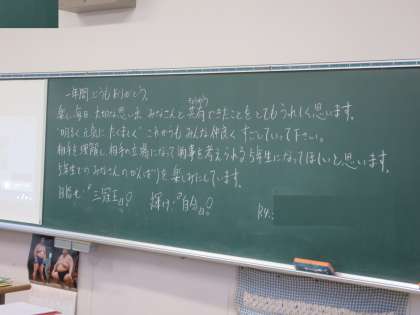 一年間どうもありがとう。
楽しい毎日、大切な思い出 みなさんと共有できたことをとてもうれしく思います。
きょうゆう
"明るく元気にたくましく" これからもみんな仲良く すごしていって下さい。
相手を理解し、相手の立場になって物事を考えられる5年生になってほしいと思います。
5年生でのみなさんのがんばりを楽しみにしています。
目指せ!"三冠王"!! 輝け!"自分"!!